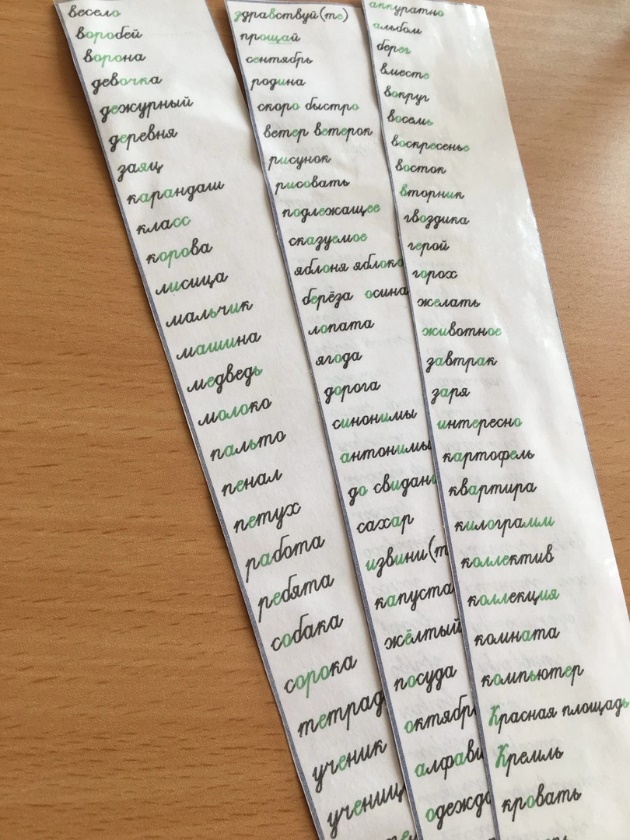 весело
воробей
ворона
девочка
дежурный
деревня
заяц
карандаш
класс
корова
лисица
мальчик
машина
медведь
молоко
пальто
пенал
петух
работа
ребята
собака
сорока
тетрад
ученик
учениц
здравствуй(те)
прощай
сентябрь
родина
скоро быстро
ветер ветерок
рисунок
рисовать
подлежащее
сказуемое
яблоня яблоко
берёза осина
лопата
ягода
дорога
синонимы
антонимы
до свидан
сахар
извини(т
капуста
жёлтый
посуда
октябр
алфави
одежда
аккуратно
альбом
берег
вместе
вокруг
восемь
воскресенье
восток
вторник
гвоздика
герой
горох
желать
животное
завтрак
заря
интересно
картофель
квартира
килограмм
коллектив
коллекция
комната
компьютер
Красная площадь
Кремль
кровать